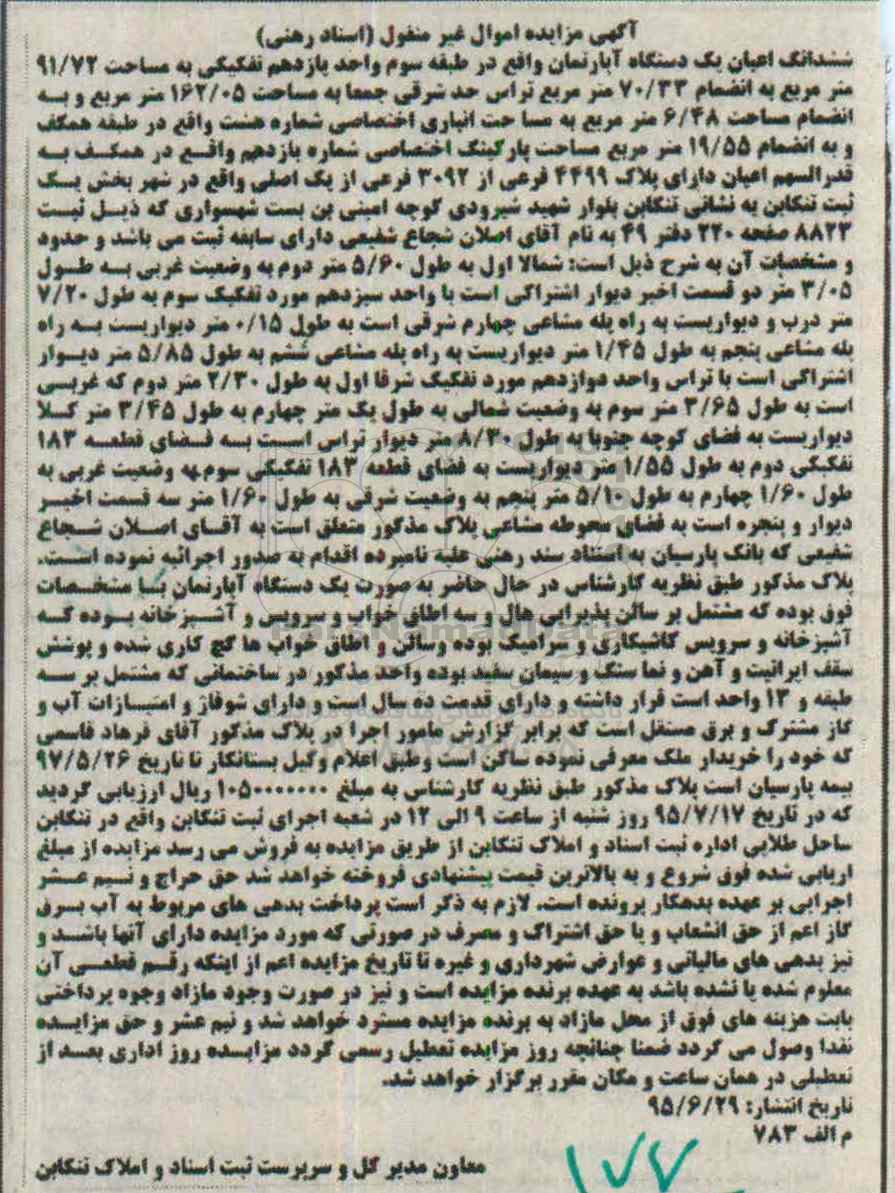 آگهی مزایده اموال غیر منقول (اسناد رهنی)
ششدانگ اعیان یک دستگاه آپارتمان واقع در طبقه سوم واحد یازدهم تفکیکی به مساحت ۹۱/۷۲
متر مربع به انضمام ۷۰/۳۳ متر مربع تراس حد شرقی جمعا به مساحت ۱۶۲/۰۵ متر مربع و به
انضمام مساحت ۶/۴۸ متر مربع به مساحت انباری اختصاصی شماره هشت واقع در طبقه همکف
و به انضمام ۱۹/۵۵ متر مربع مساحت پارکینگ اختصاصی شماره یازدهم واقع در همکف به
قدرالسهم اعیان دارای پلاک ۴۴۹۹ فرعی از ۳۰۹۲ فرعی از یک اصلی واقع در شهر بخش یک
ثبت تنکابن به نشانی تنکابن بلوار شهید شیرودی کوچه امینی بن بست شهسواری که ذیل ثبت
۸۸۲۳ صفحه ۲۲۰ دفتر ۴۹ به نام آقای اصلان شجاع شفیعی دارای سابقه ثبت می باشد و حدود
و مشخصات آن به شرح ذیل است: شمالا اول به طول ۵/۶۰ متر دوم به وضعیت غربی به طول
۳/۰۵ متر دو قسمت اخیر دیوار اشتراکی است با واحد سیزدهم مورد تفکیک سوم به طول ۷/۲۰
متر درب و دیواریست به راه پله مشاعی چهارم شرقی است به طول ۰/۱۵ متر دیواریست به راه
پله مشاعی پنجم به طول ۱/۴۵ متر دیواریست به راه پله مشاعی ششم به طول ۵/۸۵ متر دیوار
اشتراکی است با تراس واحد دوازدهم مورد تفکیک شرقا اول به طول ۲/۳۰ متر دوم که غربی
است به طول ۳/۶۵ متر سوم به وضعیت شمالی به طول یک متر چهارم به طول ۳/۴۵ متر کلا
دیواریست به فضای کوچه جنوبا به طول ۸/۳۰ متر دیوار تراس است به فضای قطعه ۱۸۳
تفکیکی دوم به طول ۱/۵۵ متر دیواریست به فضای قطعه ۱۸۳ تفکیکی سوم به وضعیت غربی به
طول ۱/۶۰ چهارم به طول ۵/۱۰ متر پنجم به وضعیت شرقی به طول ۱/۶۰ متر سه قسمت اخیر
دیوار و پنجره است به فضای محوطه مشاعی پلاک مذکور متعلق است به آقای اصلان شجاع
شفیعی که بانک پارسیان به استناد سند رهنی علیه نامبرده اقدام به صدور اجرائیه نموده است.
پلاک مذکور طبق نظریه کارشناس در حال حاضر به صورت یک دستگاه آپارتمان با مشخصات
فوق بوده که مشتمل بر سالن پذیرایی هال و سه اطاق خواب و سرویس و آشپزخانه بوده که
آشپزخانه و سرویس کاشیکاری و سرامیک بوده وسالن و اطاق خواب ها گچ کاری شده و پوشش
سقف ایرانیت و آهن و نما سنگ و سیمان سفید بوده واحد مذکور در ساختمانی که مشتمل بر سه
طبقه و ۱۳ واحد است قرار داشته و دارای قدمت ده سال است و دارای شوفاژ و امتیازات آب و
گاز مشترک و برق مستقل است که برابر گزارش مامور اجرا در پلاک مذکور آقای فرهاد قاسمی
که خود را خریدار ملک معرفی نموده ساکن است وطبق اعلام وکیل بستانکار تا تاریخ ۹۷/۵/۲۶
بیمه پارسیان است پلاک مذکور طبق نظریه کارشناس به مبلغ ۱۰۵۰۰۰۰۰۰۰ ریال ارزیابی گردید
که در تاریخ ۹۵/۷/۱۷ روز شنبه از ساعت ۹ الی ۱۲ در شعبه اجرای ثبت تنکابن واقع در تنکابن
ساحل طلایی اداره ثبت اسناد و املاک تنکابن از طریق مزایده به فروش می رسد مزایده از مبلغ
اریابی شده فوق شروع و به بالاترین قیمت پیشنهادی فروخته خواهد شد حق حراج و نیم عشر
اجرایی بر عهده بدهکار پرونده است. لازم به ذکر است پرداخت بدهی های مربوط به آب برق
گاز اعم از حق انشعاب و یا حق اشتراک و مصرف در صورتی که مورد مزایده دارای آنها باشد و
نیز بدهی های مالیاتی و عوارض شهرداری و غیره تا تاریخ مزایده اعم از اینکه رقم قطعی آن
معلوم شده یا نشده باشد به عهده برنده مزایده است و نیز در صورت وجود مازاد وجوه پرداختی
بابت هزینه های فوق از محل مازاد به برنده مزایده مسترد خواهد شد و نیم عشر و حق مزایده
نقدا وصول می گردد ضمنا چنانچه روز مزایده تعطیل رسمی گردد مزایده روز اداری بعد از
تعطیلی در همان ساعت و مکان مقرر برگزار خواهد شد.
تاریخ انتشار: ۹۵/۶/۲۹
م الف ۷۸۳
معاون مدیر کل و سرپرست ثبت اسناد و املاک تنکابن
۱۷۷